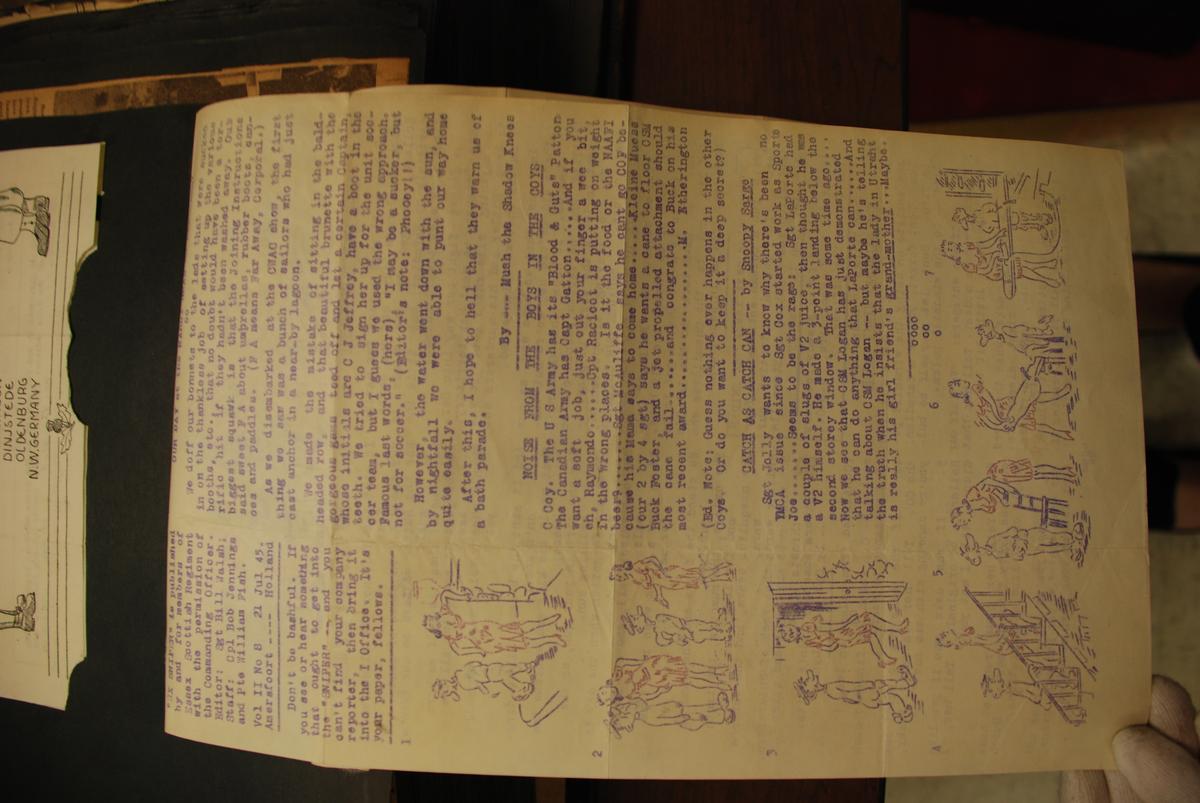 DINJSTEDE
OLDENBURG
N.W.GERMANY
"EX SNIPER" is published
by and for members of
Essex Scottish Regiment
with the permission of
the Commanding Officer.
Editor: Sgt Bill Walsh;
Staff: Cpl Bob Jennings
and Pte William Fish.
Vol II No 8 21 Jul 45.
Amersfoort ---- Holland
Don't be bashful. If
you see or hear something
that ought to get into
the "SNIPER" -- and you
can't find your company
reporter, then bring it
into the I Office. It's
your paper, fellows.
1
2
3
4
5
6
7
We doff our bonnets to the lads that were sucked
in on the thankless job of setting up the various
booths, etc. that no doubt would have been a ter-
rific hit if they hadn't been washed away. Our
biggest squawk is that the Joining Instructions
said sweet F A about umbrellas, rubber boots, can-
oes and paddles. (F A means Far Away, Corporal.)
As we disembarked at the CWAC show, the first
thing we saw was a bunch of sailors who had just
cast anchor in a near-by lagoon.
We made the mistake of sitting in the bald-
headed row, and that beautiful brunette with the
gorgeous gams teed off and let a certain Captain,
whose initials are C J Jeffrey, have a boot in the
teeth. We tried to sign her up for the unit soc-
cer team, but I guess we used the wrong approach.
Famous last words, (hers) "I may be a sucker, but
not for soccer." (Editor's note: Phooey!!)
However the water went down with the sun, and
by nightfall we were able to punt our way home
quite easily.
After this, I hope to hell that they warn us of
a bath parade.
By --- Mush the Shadow Knees
NOISE FROM THE BOYS IN THE COYS
C Coy. The U S Army has its "Blood & Guts" Patton
The Canadian Army has Capt Gatton.....And if you
want a soft job, just cut your finger a wee bit,
eh, Raymond?.....Cpl Racicot is putting on weight
in the wrong places. is it the food or the NAAFI
beer?.....Sgt McAuliffe says he cant go COF be-
cause his Mama says to come home....Kleine Muess
(our 2 by 4 sgt) says he wants a cane to floor CSM
Buck Foster and a jet propelled attachment should
the cane fail....and congrats to Buck on his
most recent award........M. Etherington
(Ed. Note: Guess nothing ever happens in the other
Coys. Or do you want to keep it a deep secret?)
CATCH AS CATCH CAN -- by Snoopy Sarge
Sgt Jolly wants to know why there's been no
YMCA issue since Sgt Cox started work as Sports
Joe.....Seems to be the rage: Sgt LaPorte had
a couple of slugs of V2 juice, then thought he was
a V2 himself. He made a 3-point landing below the
second storey window. That was some time ago....
Now we see that CSM Logan has just demonstrated
that he can do anything that LaPorte can.....And
talking about CSM Logan -- but maybe he's telling
the truth when he insists that the lady in Utraht
is really his girl friend's grand-mother...Maybe.
oooo
oo
o